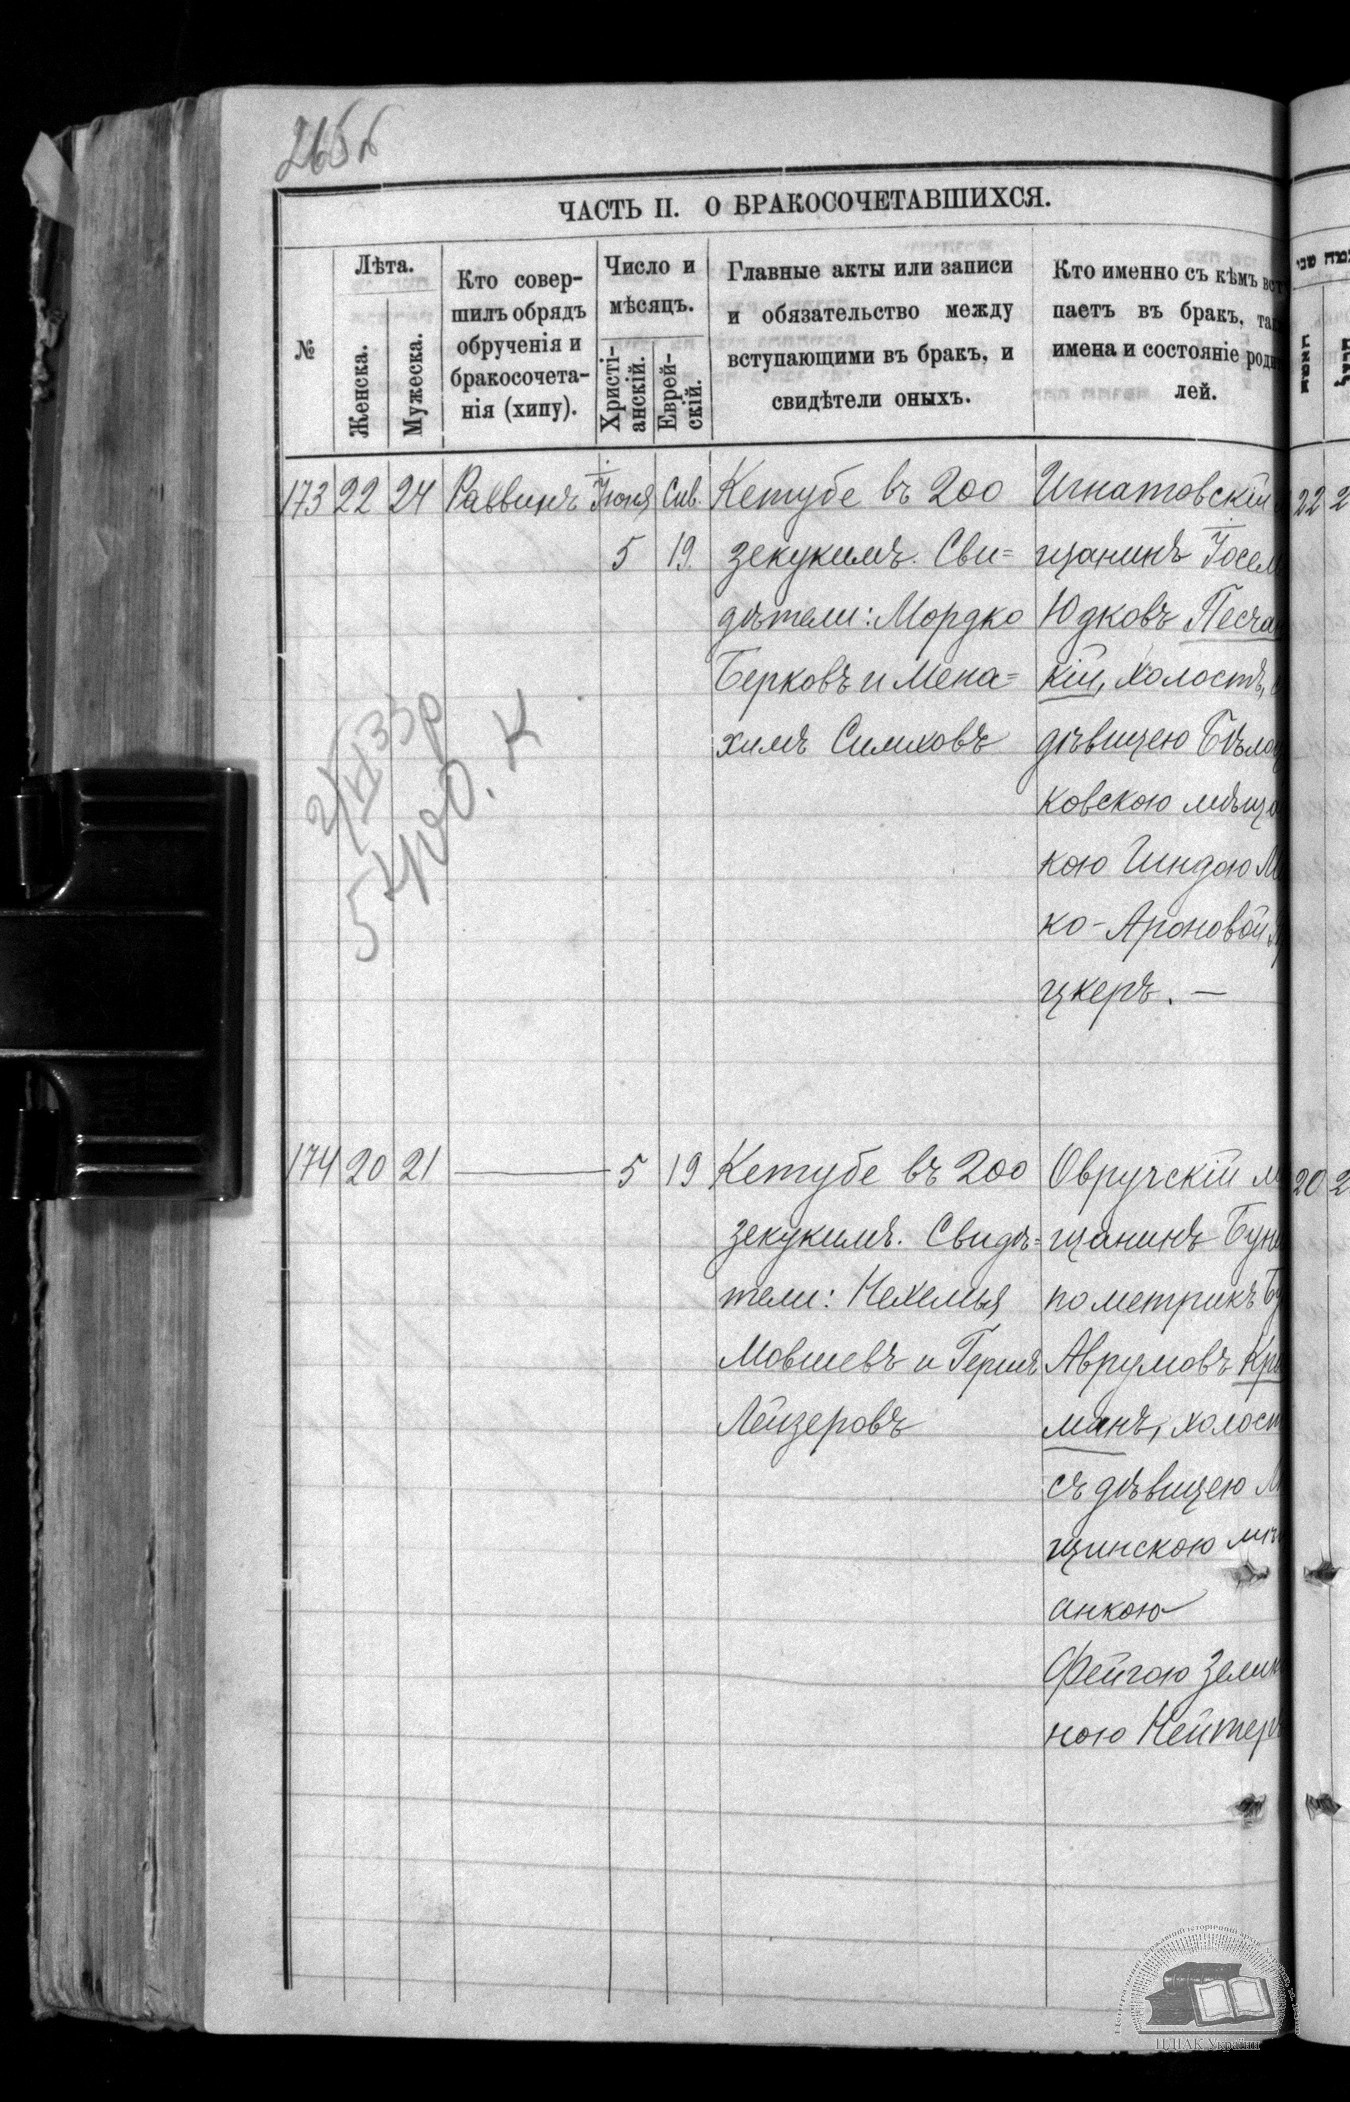 265б
ЧАСТЬ II. О БРАКОСОЧЕТАВШИХСЯ.
№
Лѣта.
Женска.
Мужеска.
Кто совер-
шилъ обрядъ
обрученія и
бракосочета-
нія (хипу).
Число и
мѣсяцъ.
Христі-
анскій.
Еврей-
скій.
Главные акты или записи
и обязательство между
вступающими въ бракъ, и
свидѣтели оныхъ.
Кто именно съ кѣмъ вст
паетъ въ бракъ, та
имена и состояніе роди
лей.
173 22 24 Раввинъ Іюня Сив.
5 19.
Кетубе въ 200
зекукимъ. Сви=
дѣтели: Мордко
Берковъ и Мена=
химъ Симховъ
Игнатовскій
щанинъ Іосел
Юдковъ Песча
кій, холостъ,
дѣвицею Бѣло
ковскою мѣща
кою Гиндою М
ко-Ароновой
цкеръ. —
2/VI 33 р
5 400. К
174 20 21 — 5 19
Кетубе въ 200
зекукимъ. Свидѣ=
тели: Нехемья
Мовшевъ и Гершъ
Лейзеровъ
Овручскій м
щанинъ Бун
по метрикѣ
Аврумовъ Кр
манъ, холост
съ дѣвицею
щинскою мѣ
анкою
Фейгою Зелик
ною Нейтер
22 2
20 2
ЦДІАК України